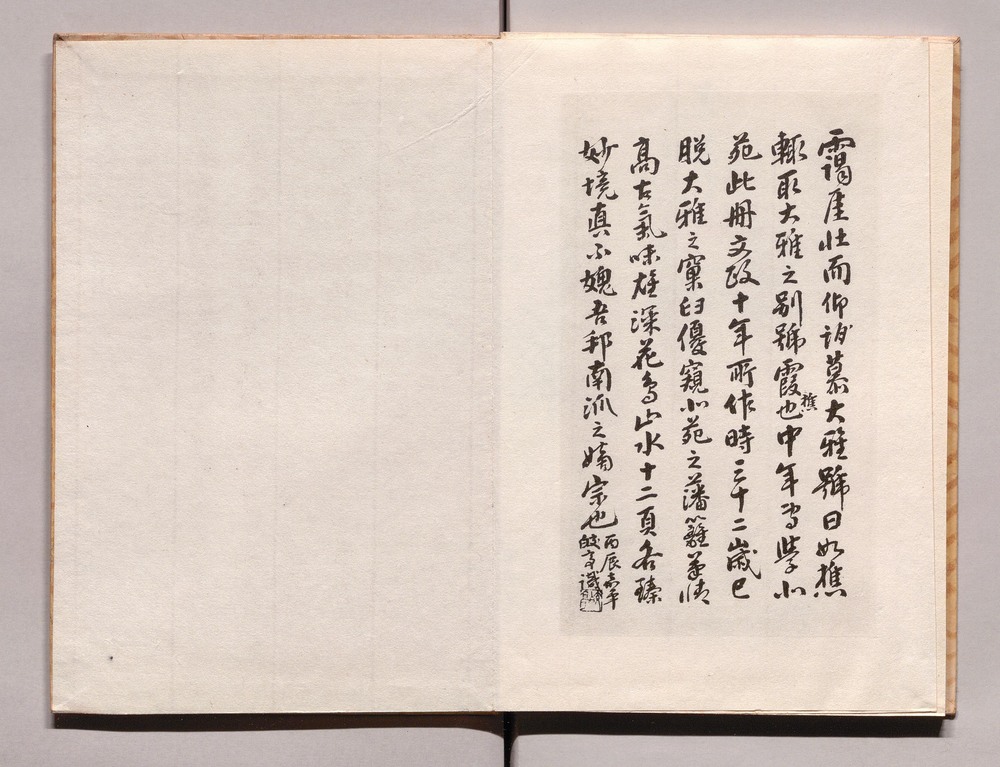 靄厓壯而仰詢慕大雅號曰如樵
輙取大雅之別號霞樵也中年嘗學小
苑此冊文政十年所作時三十二歲已
脱大雅之窠臼優窺小苑之藩籬筆情
高古氣味雄深花鳥山水十二頁各臻
妙境真不媿吾邦南派之嫡宗也
丙辰嘉平
皎亭識